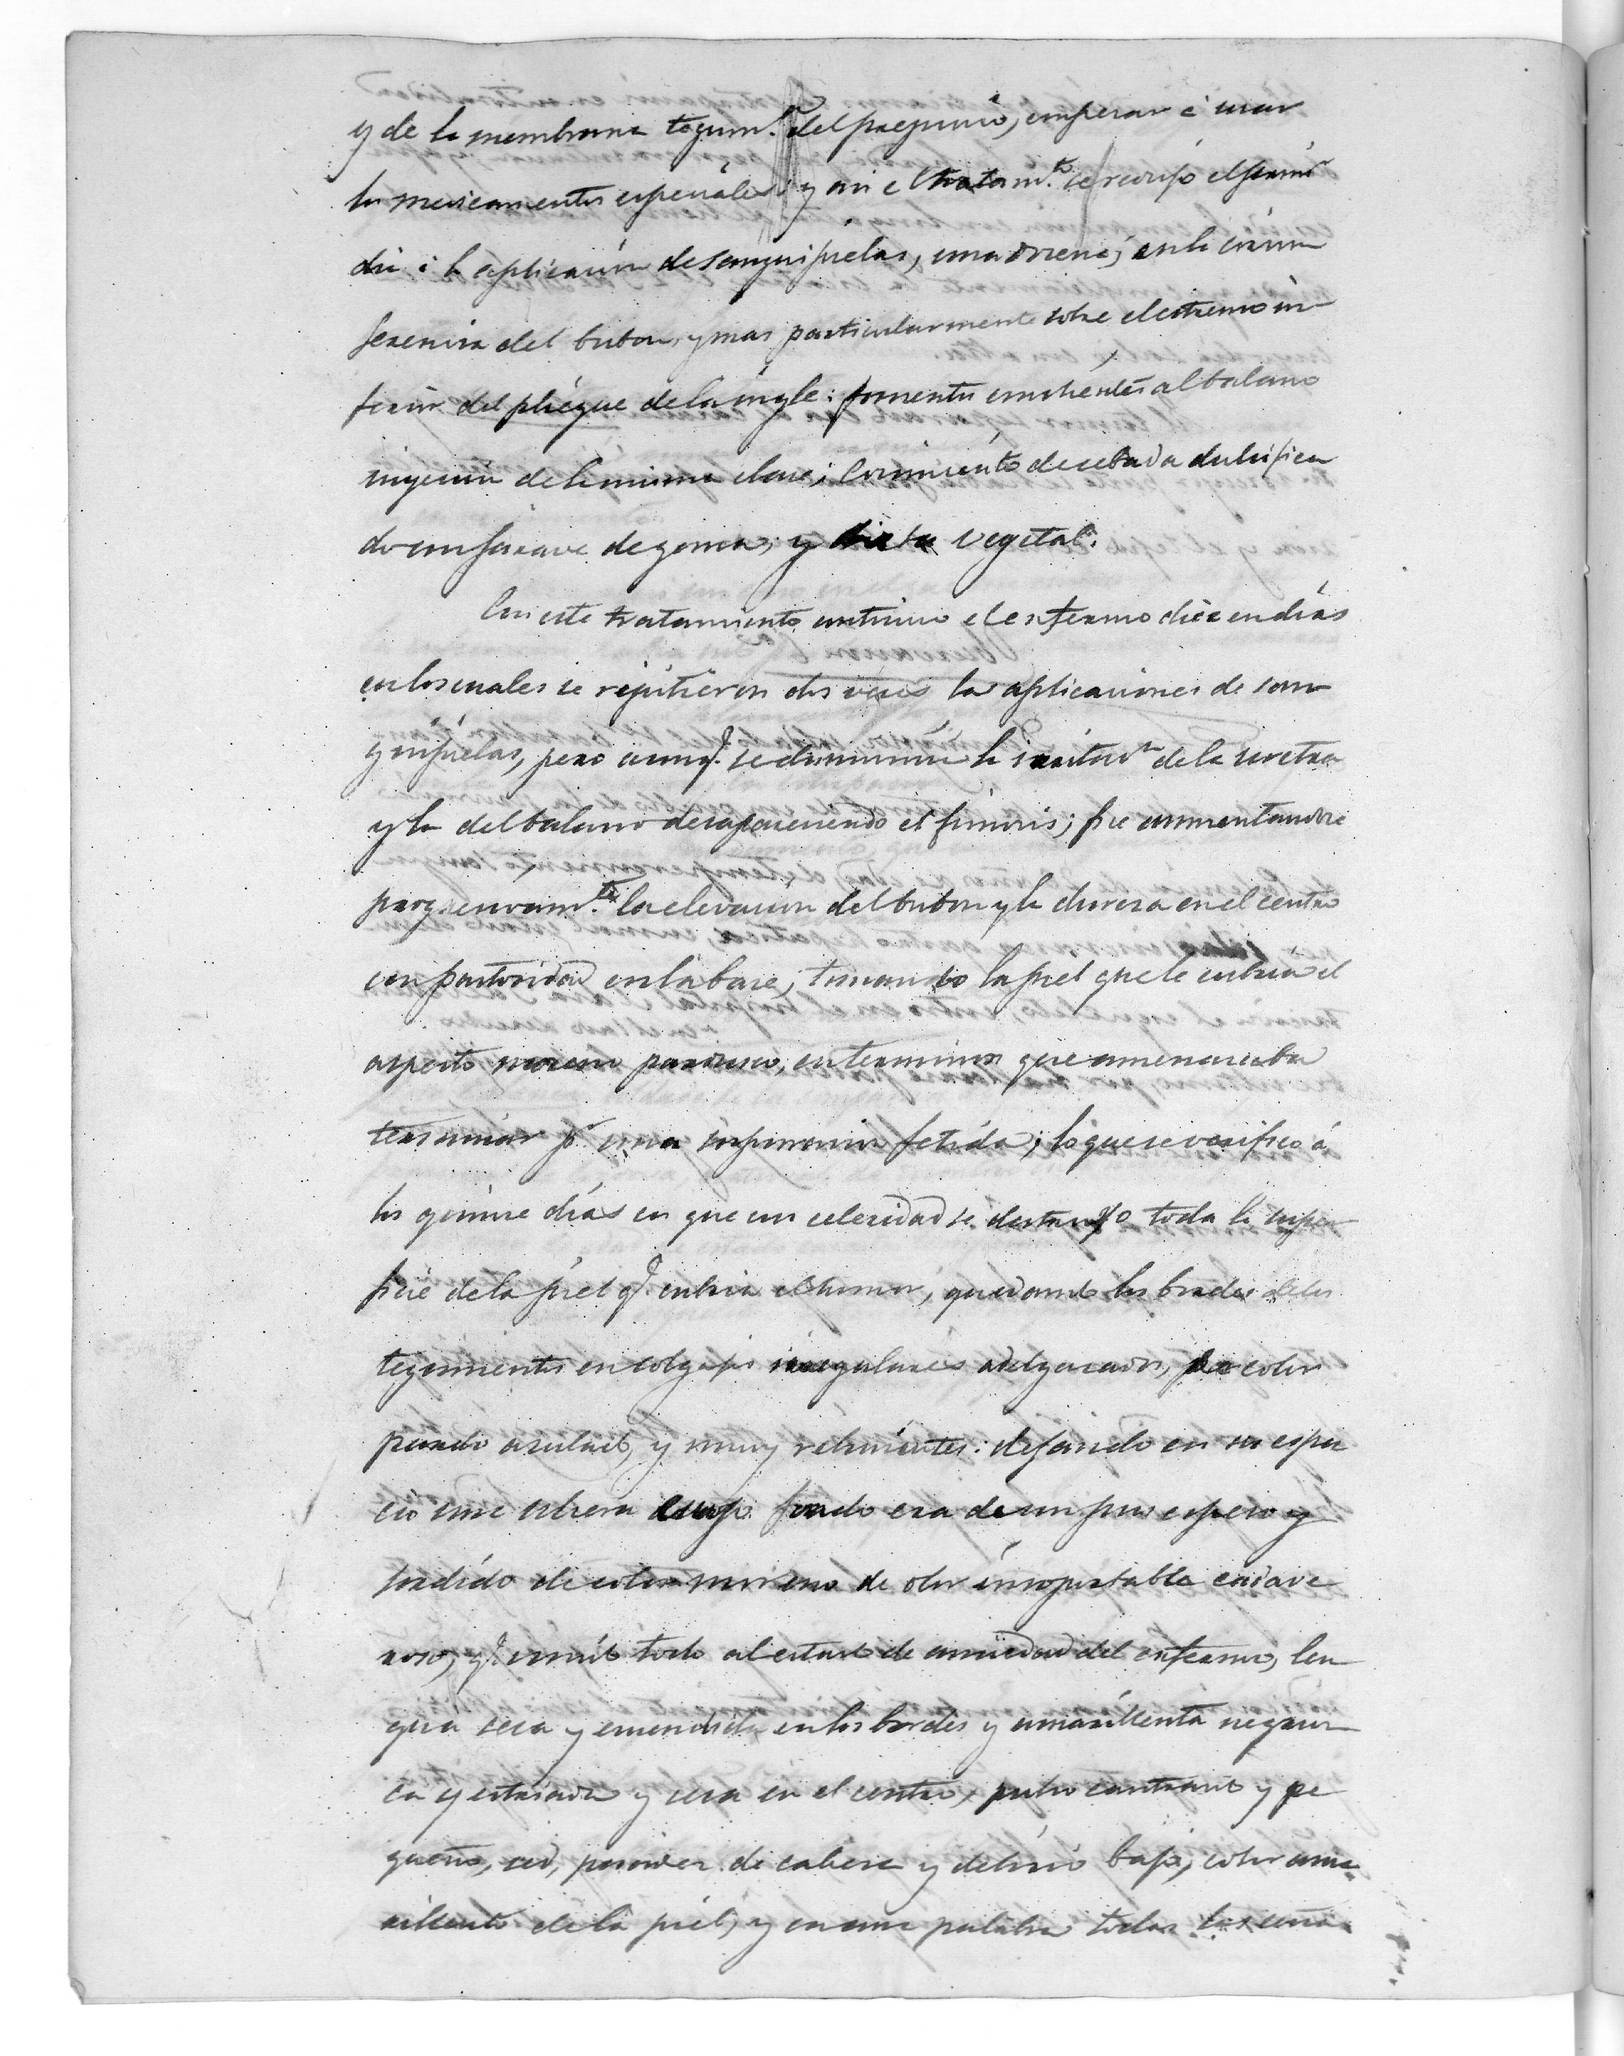 y de la membrana tegum.ª del prepucio, empezar á usar
los medicamentos especiales: y asi el tratam.to se redujo el primer
dia á la aplicacion de sanguijuelas, una docena, en la circun
ferencia del bubon, y mas particularmente sobre el estremo in
ferior del pliegue de la ingle: fomentos emolientes al balano
inyeccion de la misma clase; cocimiento de cebada dulcifica
do con jarave de goma; y dieta vegetal.
Con este tratamiento continuo el enfermo diez en dias
en los cuales se repitieron dos veces las aplicaciones de san
guijuelas, pero aunq.e se disminuia la irritac.n de la uretra
y la del balano desapareciendo el fimosis; fue aumentandose
progresivam.te la elevacion del bubon y la dureza en el centro
con pastosidad en la base, tomando la piel que le cubria el
aspecto moreno pardusco, en terminos que amenazaba
terminar p.r una supuracion fetida; lo que se verifico á
los quince dias en que con celeridad se destruyo toda la super
ficie de la piel q.e cubria el tumor, quedando los bordes de los
tegumentos en colgajos irregulares adelgazados, de color
pardo azulado, y muy relucientes: dejando en su espa
cio una ulcera cuyo fondo era de un pus espeso y
sordido de color moreno de olor insoportable cadave
roso, y q.e unido todo al estado de ansiedad del enfermo, len
gua seca y encendida en los bordes y amarillenta negruz
ca y estriada y seca en el centro, pulso contraido y pe
queño, sed, pesadez de cabeza y delirio bajo, color ama
rillento de la piel, y en una palabra todos los